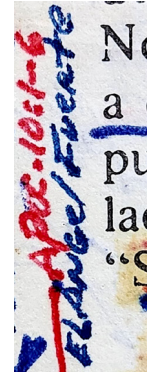 Apoc. 10:1-6
EL ANGEL FUERTE
No
a
pu
lac
“S